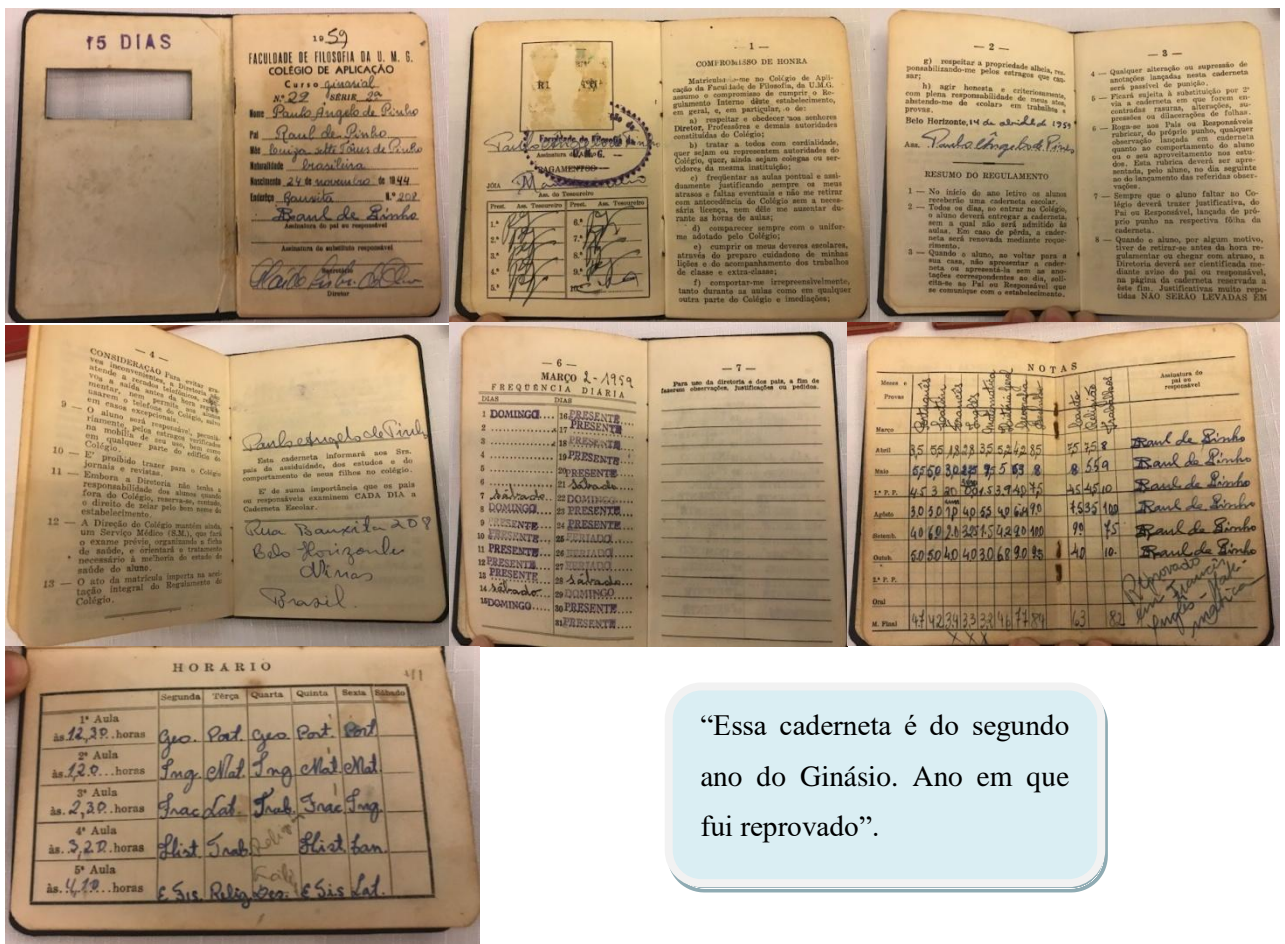 15 DIAS
1959
FACULDADE DE FILOSOFIA DA U. M. G.
COLÉGIO DE APLICAÇÃO
Curso ginasial
N.º 29 SÉRIE 2ª
Nome Paulo Angelo de Pinho
Pai Raul de Pinho
Mãe Luiza de Pinho
Naturalidade brasileira
Nascimento 24 de novembro de 1944
Endereço Bauxita N.º 208
Raul de Pinho
Assinatura do pai ou responsável
Assinatura do substituto responsável
Diretor
R1
Faculdade de Filosofia da
U. M. G.
PAGAMENTOS
JOIA
Ass. do Tesoureiro
Prest. Ass. Tesoureiro Prest. Ass. Tesoureiro
1.ª 6.ª
2.ª 7.ª
3.ª 8.ª
4.ª 9.ª
5.ª 10.ª
— 1 —
COMPROMISSO DE HONRA
Matriculando-me no Colégio de Apli-
cação da Faculdade de Filosofia, da U.M.G.
assumo o compromisso de cumprir o Re-
gulamento Interno dêste estabelecimento,
em geral, e, em particular, o de:
a) respeitar e obedecer aos senhores
Diretor, Professôres e demais autoridades
constituídas do Colégio;
b) tratar a todos com cordialidade,
quer sejam ou representem autoridades do
Colégio, quer, ainda sejam colegas ou ser-
vidores da mesma instituição;
c) freqüentar as aulas pontual e assi-
duamente justificando sempre os meus
atrasos e faltas eventuais e não me retirar
com antecedência do Colégio sem a neces-
sária licença, nem dêle me ausentar du-
rante as horas de aulas;
d) comparecer sempre com o unifor-
me adotado pelo Colégio;
e) cumprir os meus deveres escolares,
através do preparo cuidadoso de minhas
lições e do acompanhamento dos trabalhos
de classe e extra-classe;
f) comportar-me irrepreensivelmente,
tanto durante as aulas como em qualquer
outra parte do Colégio e imediações;
— 2 —
g) respeitar a propriedade alheia, res-
ponsabilizando-me pelos estragos que cau-
sar;
h) agir honesta e criteriosamente,
com plena responsabilidade de meus atos,
abstendo-me de escolars em trabalhos e
provas.
Belo Horizonte, 14 de abril de 1959
Ass. Paulo Angelo de Pinho
RESUMO DO REGULAMENTO
1 — No início do ano letivo os alunos
receberão uma caderneta escolar.
2 — Todos os dias, ao entrar no Colégio,
o aluno deverá entregar a caderneta,
sem a qual não será admitido às
aulas. Em caso de perda, a cader-
neta será renovada mediante reque-
rimento.
3 — Quando o aluno, ao voltar para a
sua casa, não apresentar a cader-
neta ou apresentá-la sem as ano-
tações correspondentes ao dia, soli-
cita-se ao Pai ou Responsável que
se comunique com o estabelecimento.
— 3 —
4 — Qualquer alteração ou supressão de
anotações lançadas nesta caderneta
será passível de punição.
5 — Ficará sujeita à substituição por 2ª
via a caderneta em que forem en-
contradas rasuras, alterações, su-
pressões ou dilacerações de folhas.
6 — Roga-se aos Pais ou Responsáveis
rubricar, do próprio punho, qualquer
observação lançada em caderneta
quanto ao comportamento do aluno
ou o seu aproveitamento nos estu-
dos. Esta rubrica deverá ser apre-
sentada, pelo aluno, no dia seguinte
ao do lançamento das referidas obser-
vações.
7 — Sempre que o aluno faltar ao Co-
légio deverá trazer justificativa, do
Pai ou Responsável, lançada de pró-
prio punho na respectiva fôlha da
caderneta.
8 — Quando o aluno, por algum motivo,
tiver de retirar-se antes da hora re-
gulamentar ou chegar com atraso, a
Diretoria deverá ser cientificada me-
diante aviso do pai ou responsável,
na página da caderneta reservada a
êste fim. Justificativas muito repe-
tidas NÃO SERÃO LEVADAS EM
— 4 —
CONSIDERAÇÃO Para evitar gra-
ves inconvenientes, a Diretoria não
atende a recados telefônicos,
vos à saída antes da hora regula-
mentar, nem permite aos alunos
usarem o telefone do Colégio, salvo
em casos excepcionais.
9 — O aluno será responsável, pecunià-
riamente, pelos estragos verificados
na mobília de seu uso, bem como
em qualquer parte do edifício do
Colégio.
10 — E' proibido trazer para o Colégio
jornais e revistas.
11 — Embora a Diretoria não tenha a
responsabilidade dos alunos quando
fora do Colégio, reserva-se, contudo,
o direito de zelar pelo bom nome do
estabelecimento.
12 — A Direção do Colégio mantém ainda,
um Serviço Médico (S.M.), que fará
o exame prévio, organizando a ficha
de saúde, e orientará o tratamento
necessário à melhoria do estado de
saúde do aluno.
13 — O ato da matrícula importa na acei-
tação integral do Regulamento do
Colégio.
Paulo Angelo de Pinho
Esta caderneta informará aos Srs.
pais da assiduidade, dos estudos e do
comportamento de seus filhos no colégio.
E' de suma importância que os pais
ou responsáveis examinem CADA DIA a
Caderneta Escolar.
Rua Bauxita 208
Belo Horizonte
Minas
Brasil.
— 6 —
MARÇO 2-1959
FREQUÊNCIA DIÁRIA
DIAS DIAS
1 DOMINGO 16 PRESENTE
2 17 PRESENTE
3 18 PRESENTE
4 19 PRESENTE
5 20 PRESENTE
6 21 sábado
7 sábado 22 DOMINGO
8 DOMINGO 23 PRESENTE
9 PRESENTE 24 PRESENTE
10 PRESENTE 25 FERIADO
11 PRESENTE 26 FERIADO
12 PRESENTE 27 FERIADO
13 PRESENTE 28 sábado
14 sábado 29 DOMINGO
15 DOMINGO 30 PRESENTE
31 PRESENTE
— 7 —
Para uso da diretoria e dos pais, a fim de
fazerem observações, justificações ou pedidos.
NOTAS
Meses e Provas Português Latim Francês Inglês Matemática Geografia Desenho Canto Religião Trabalhos Assinatura do pai ou responsável
Março
Abril Raul de Pinho
Maio Raul de Pinho
1.ª P. P. Raul de Pinho
Agôsto Raul de Pinho
Setemb. Raul de Pinho
Outub. Raul de Pinho
2.ª P. P.
Oral
M. Final 4,7 4,2 3,4 3,3 3,2 4,6 7,7 8,4 63 82
XXX
Reprovado
em Francês
Inglês - Mate-
mática
HORÁRIO
41
Segunda Têrça Quarta Quinta Sexta Sábado
1ª Aula
às 12,30 horas Geo. Port. Geo. Port. Port
2ª Aula
às 1,20 horas Ing Mat. Ing Mat. Mat.
3ª Aula
às 2,30 horas Frac Lat. Trab. Frac Ing.
4ª Aula
às 3,20 horas Hist Trab. Relig Hist Can.
5ª Aula
às 4,10 horas E. Fís. Relig Des. E Fís Lat.
“Essa caderneta é do segundo
ano do Ginásio. Ano em que
fui reprovado”.